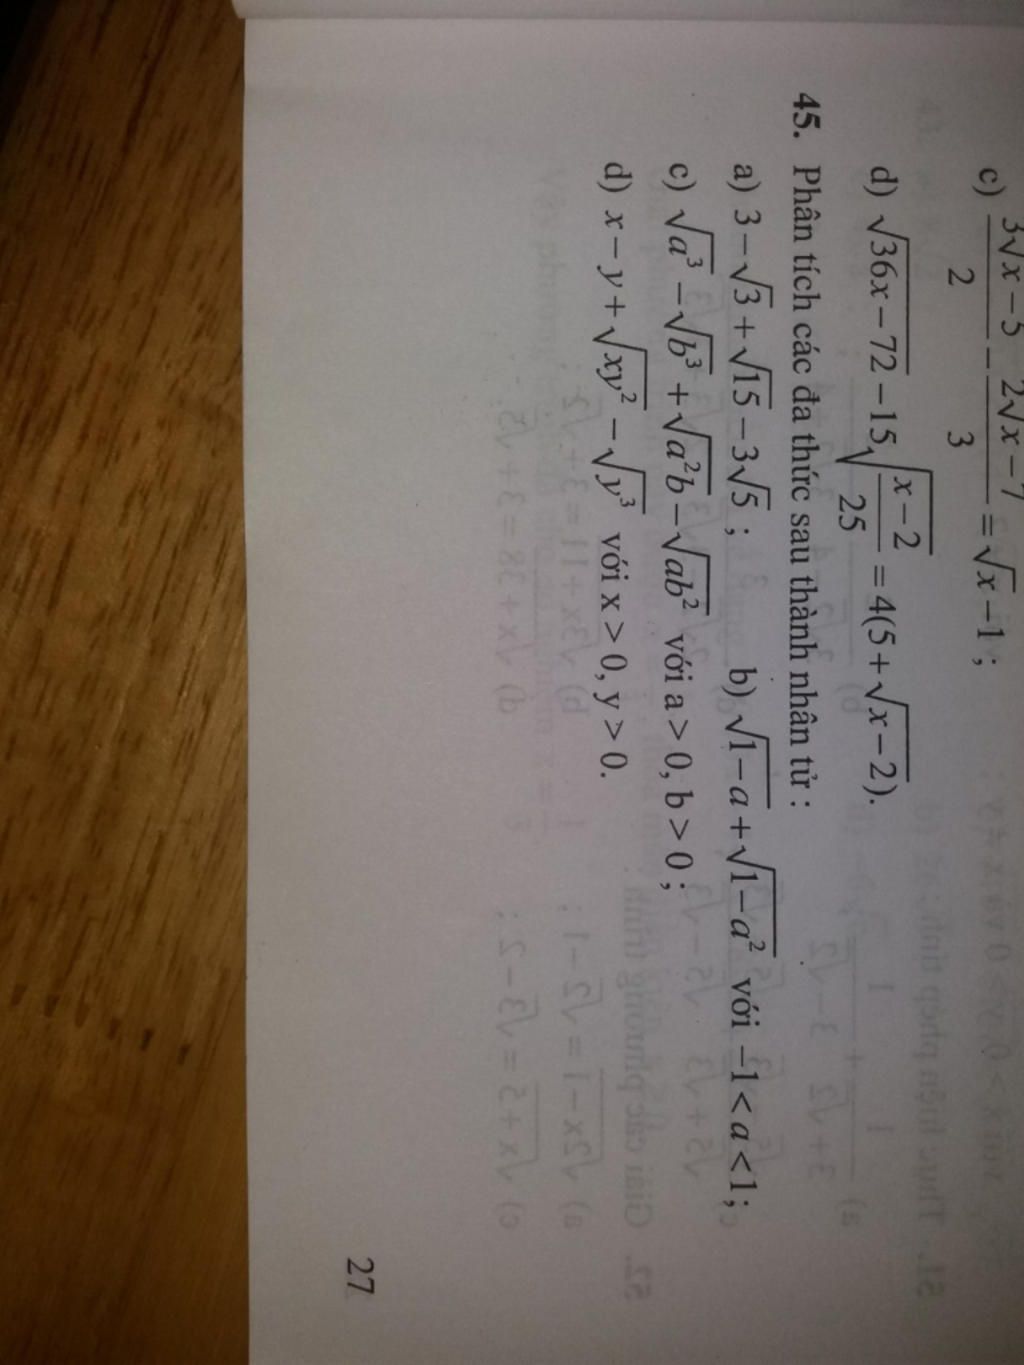 c) \frac{3\sqrt{x}-5}{2} - \frac{2\sqrt{x}-7}{3} = \sqrt{x}-1 ;
d) \sqrt{36x-72} - 15\sqrt{\frac{x-2}{25}} = 4(5+\sqrt{x-2}).
45. Phân tích các đa thức sau thành nhân tử :
a) 3-\sqrt{3}+\sqrt{15}-3\sqrt{5} ; b) \sqrt{1-a}+\sqrt{1-a^2} với -1<a<1;
c) \sqrt{a^3}-\sqrt{b^3}+\sqrt{a^2b}-\sqrt{ab^2} với a>0, b>0;
d) x-y+\sqrt{xy^2}-\sqrt{y^3} với x>0, y>0.
27